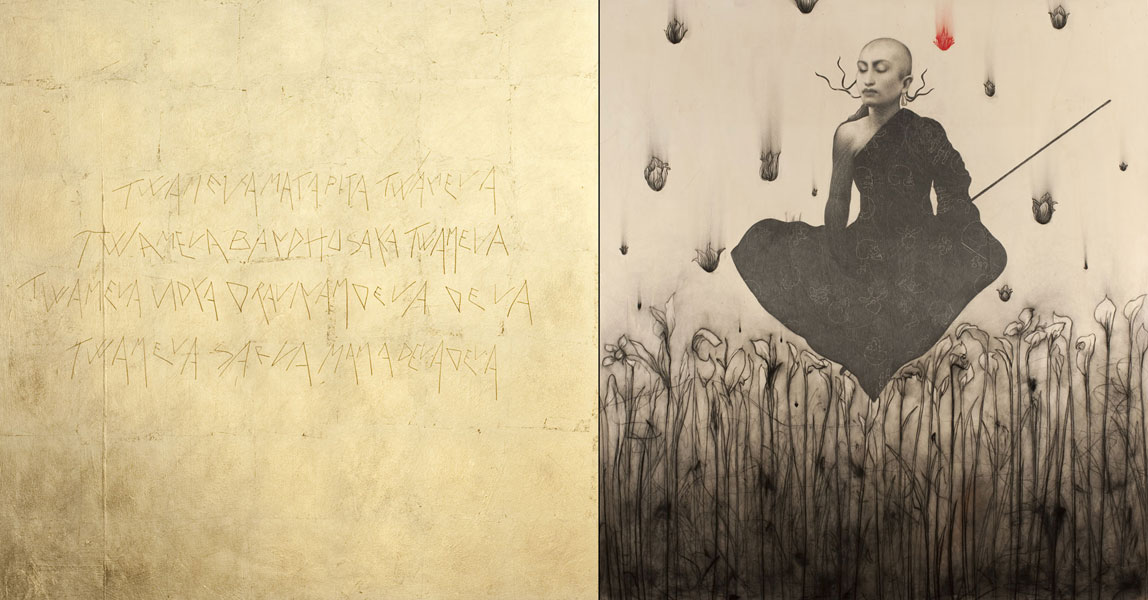 TWAMEVA MATAPITA TWAMEVA
TWAMEVA BANDHU SAKA TWAMEVA
TWAMEVA VIDYA DRAVINAMDEVA DEVA
TWAMEVA SAEVA MAMADEVADEVA